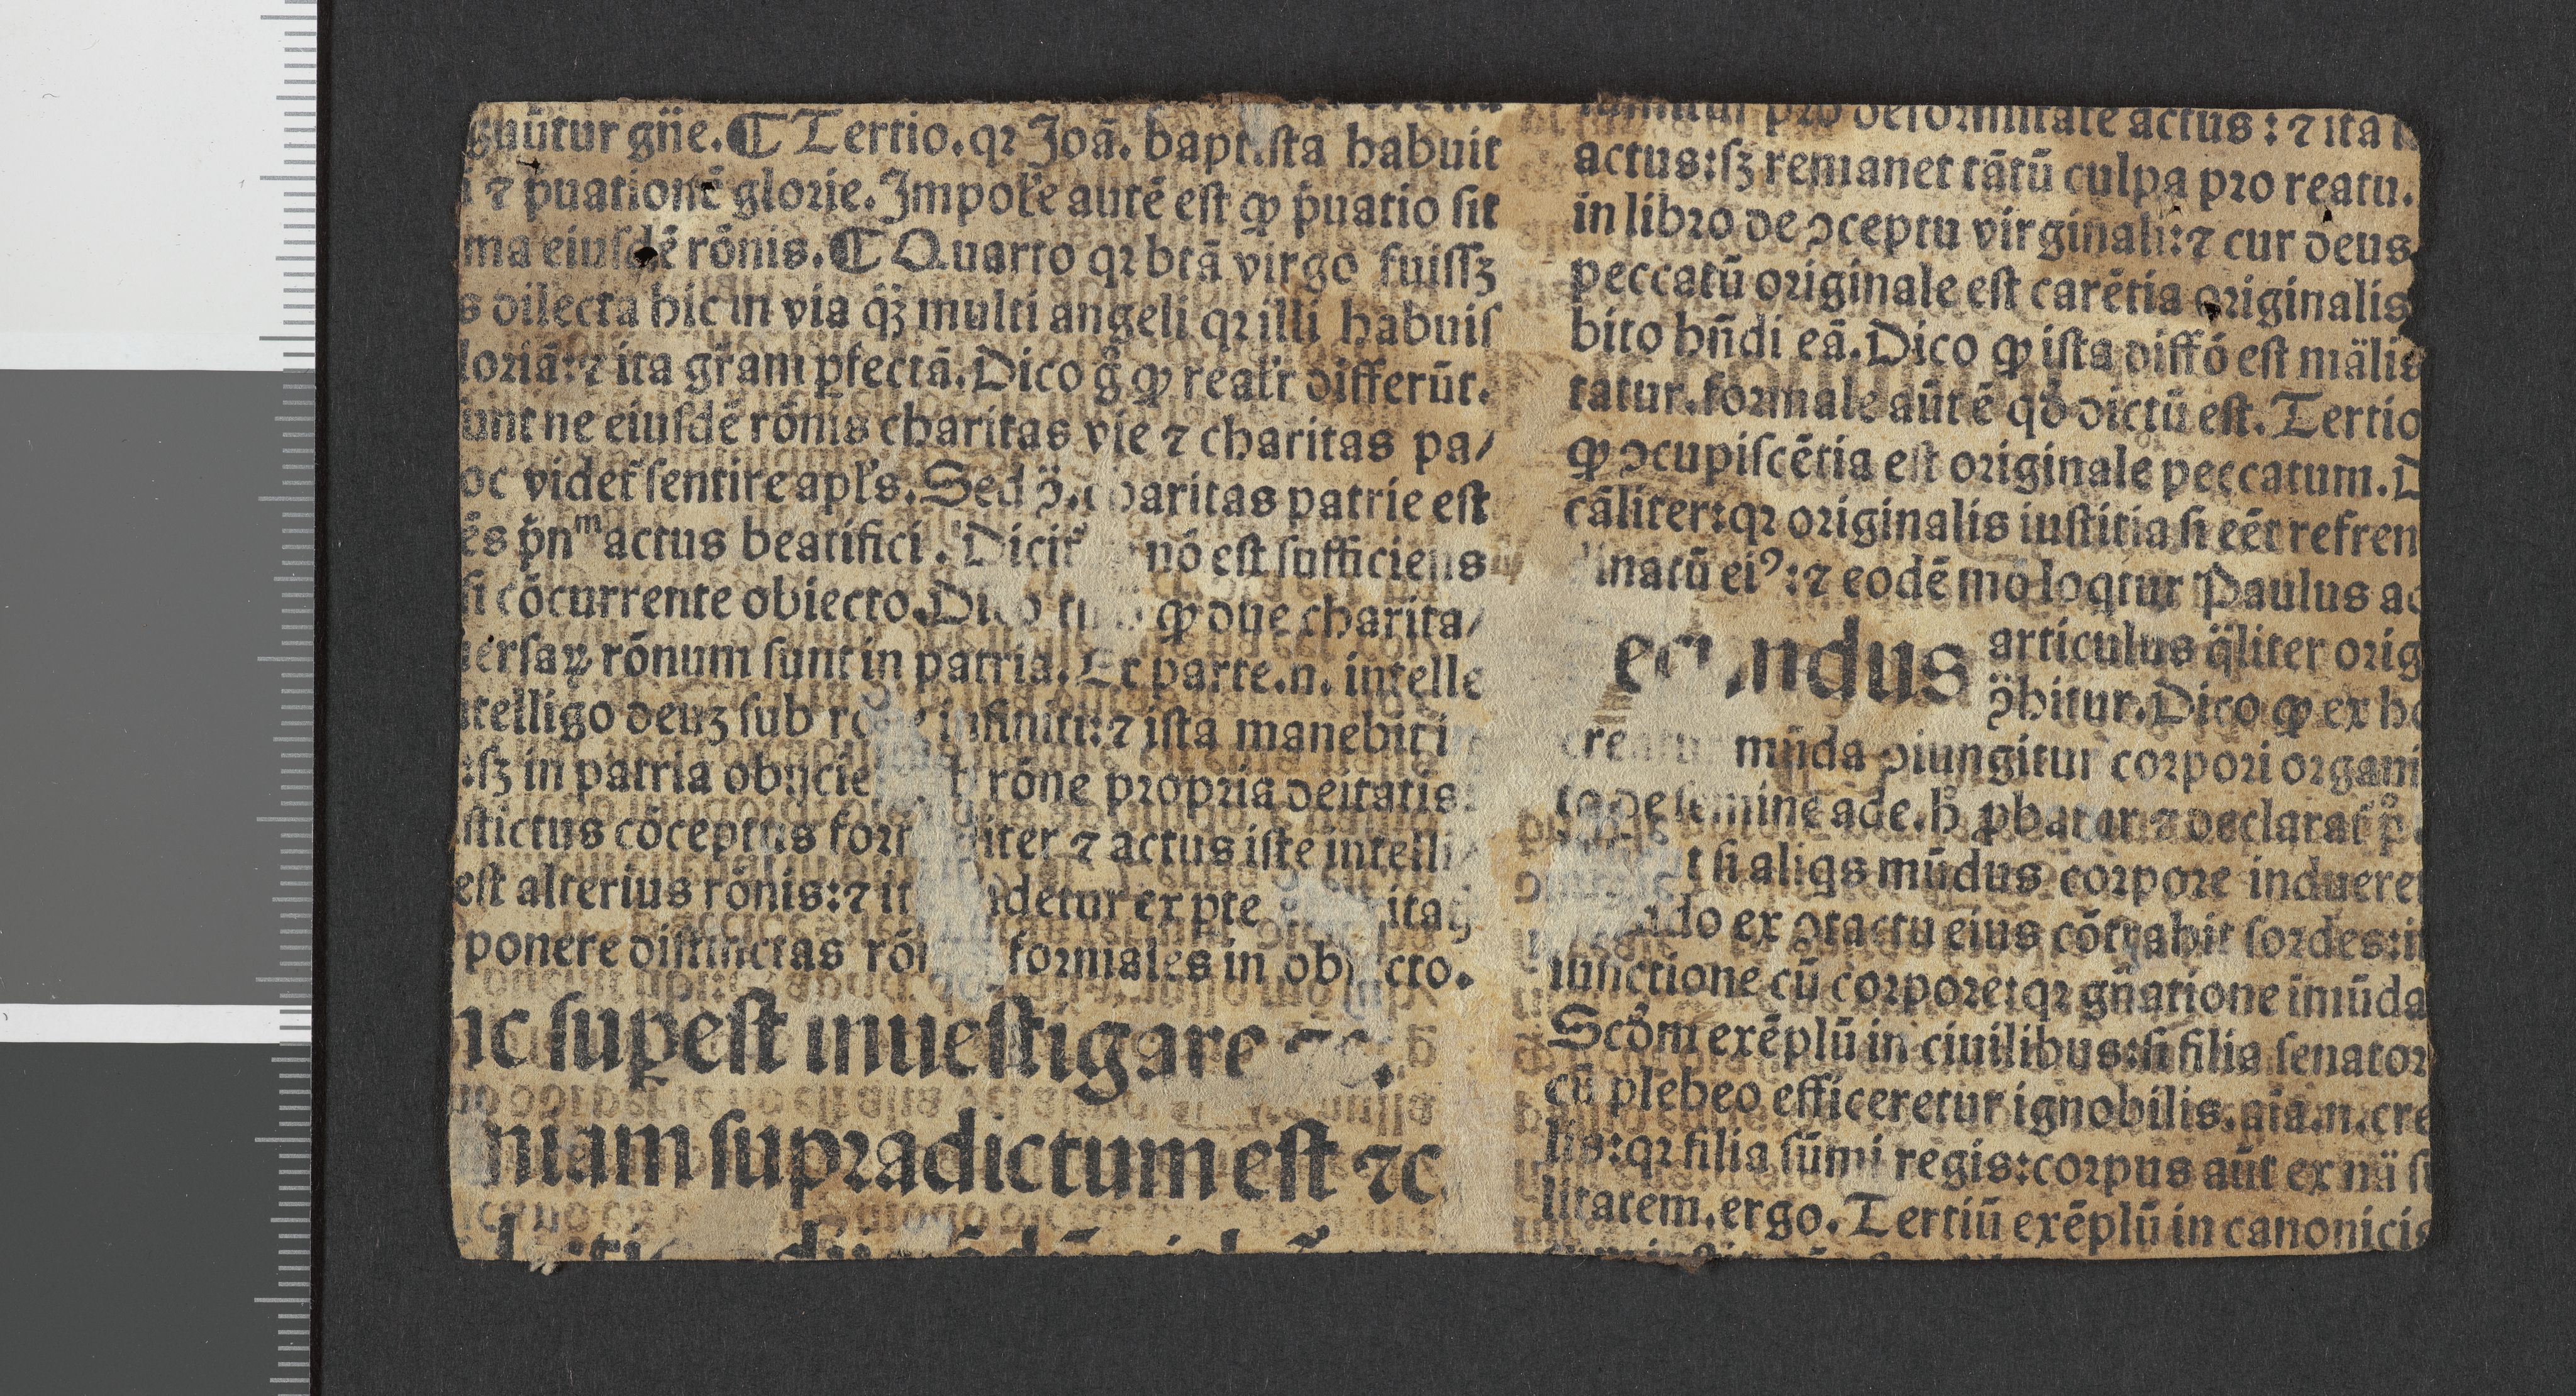 guūtur gn̄e. ¶ Tertio. qꝛ Joā. baptista habuit
i ⁊ p̄uationē glorie. Impoſ̄e autē eſt ꝙ p̄uatio ſit
ma eiuſdē rōnis. ¶ Quarto qꝛ btā virgo fuiſſꝫ
s dilecta hic in via q̄ꝫ multi angeli qꝛ illi habuiſ
loriā: ⁊ ita gr̄am ꝑfectā. Dico gͦ ꝙ realr̄ differūt.
unt ne eiuſdē rōnis charitas vie ⁊ charitas pa/
oc videt̄ ſentire apl̄s. Sed ꝯ̄. charitas patrie eſt
ēs p̄nᵐ actus beatifici. Dicit̄ nō eſt ſufficiens
ſi cōcurrente obiecto. ꝙ due charita/
uerſaꝝ rōnum ſunt in patria. Ex parte .n. intelle
ntelligo deuꝫ ſub infiniti: ⁊ iſta manebit i
:ſꝫ in patria obijcie rōne propria deitatis:
ſtictus cōceptus iter ⁊ actus iſte intelli/
eſt alterius rōnis: ⁊ detur ex ꝑte
ponere diſtinctas formales in obiecto.
nc ſupeſt inueſtigare ⁊c.
niam ſupradictum eſt ⁊c
pro deformitate actus: ⁊ ita
actus: ſꝫ remanet tātū culpa pro reatu.
in libro de ꝯceptu virginali: ⁊ cur deus
peccatū originale eſt carētia originalis
bito hn̄di eā. Dico ꝙ iſta diffō eſt mālis
tatur. formale aūt ē qđ dictū eſt. Tertio
ꝙ ꝯcupiſcētia eſt originale peccatum. D
cāliter: qꝛ originalis iuſtitia ſi eēt refren
dinatū eiꝰ: ⁊ eodē mō loqtur Paulus ad
ecundus articulus q̄liter orig
ꝯ̄hitur. Dico ꝙ ex ho
creatur mūda ꝯiungitur corpori organi
to de ſemine ade. h̄ ꝓbatur ⁊ declarat̄ pͦ
t ſi aliqs mūdus corpore indueret
do ex ꝯtactu eius cōtrahit ſordes: i
iunctione cū corpore: qꝛ gn̄atione īmūda
Scōm exēplū in ciuilibus: ſi filia ſenator
cū plebeo efficeretur ignobilis. aīa .n. cre
lis: qꝛ filia ſūmi regis: corpus aūt ex nā ſu
litatem. ergo. Tertiū exēplū in canonicis